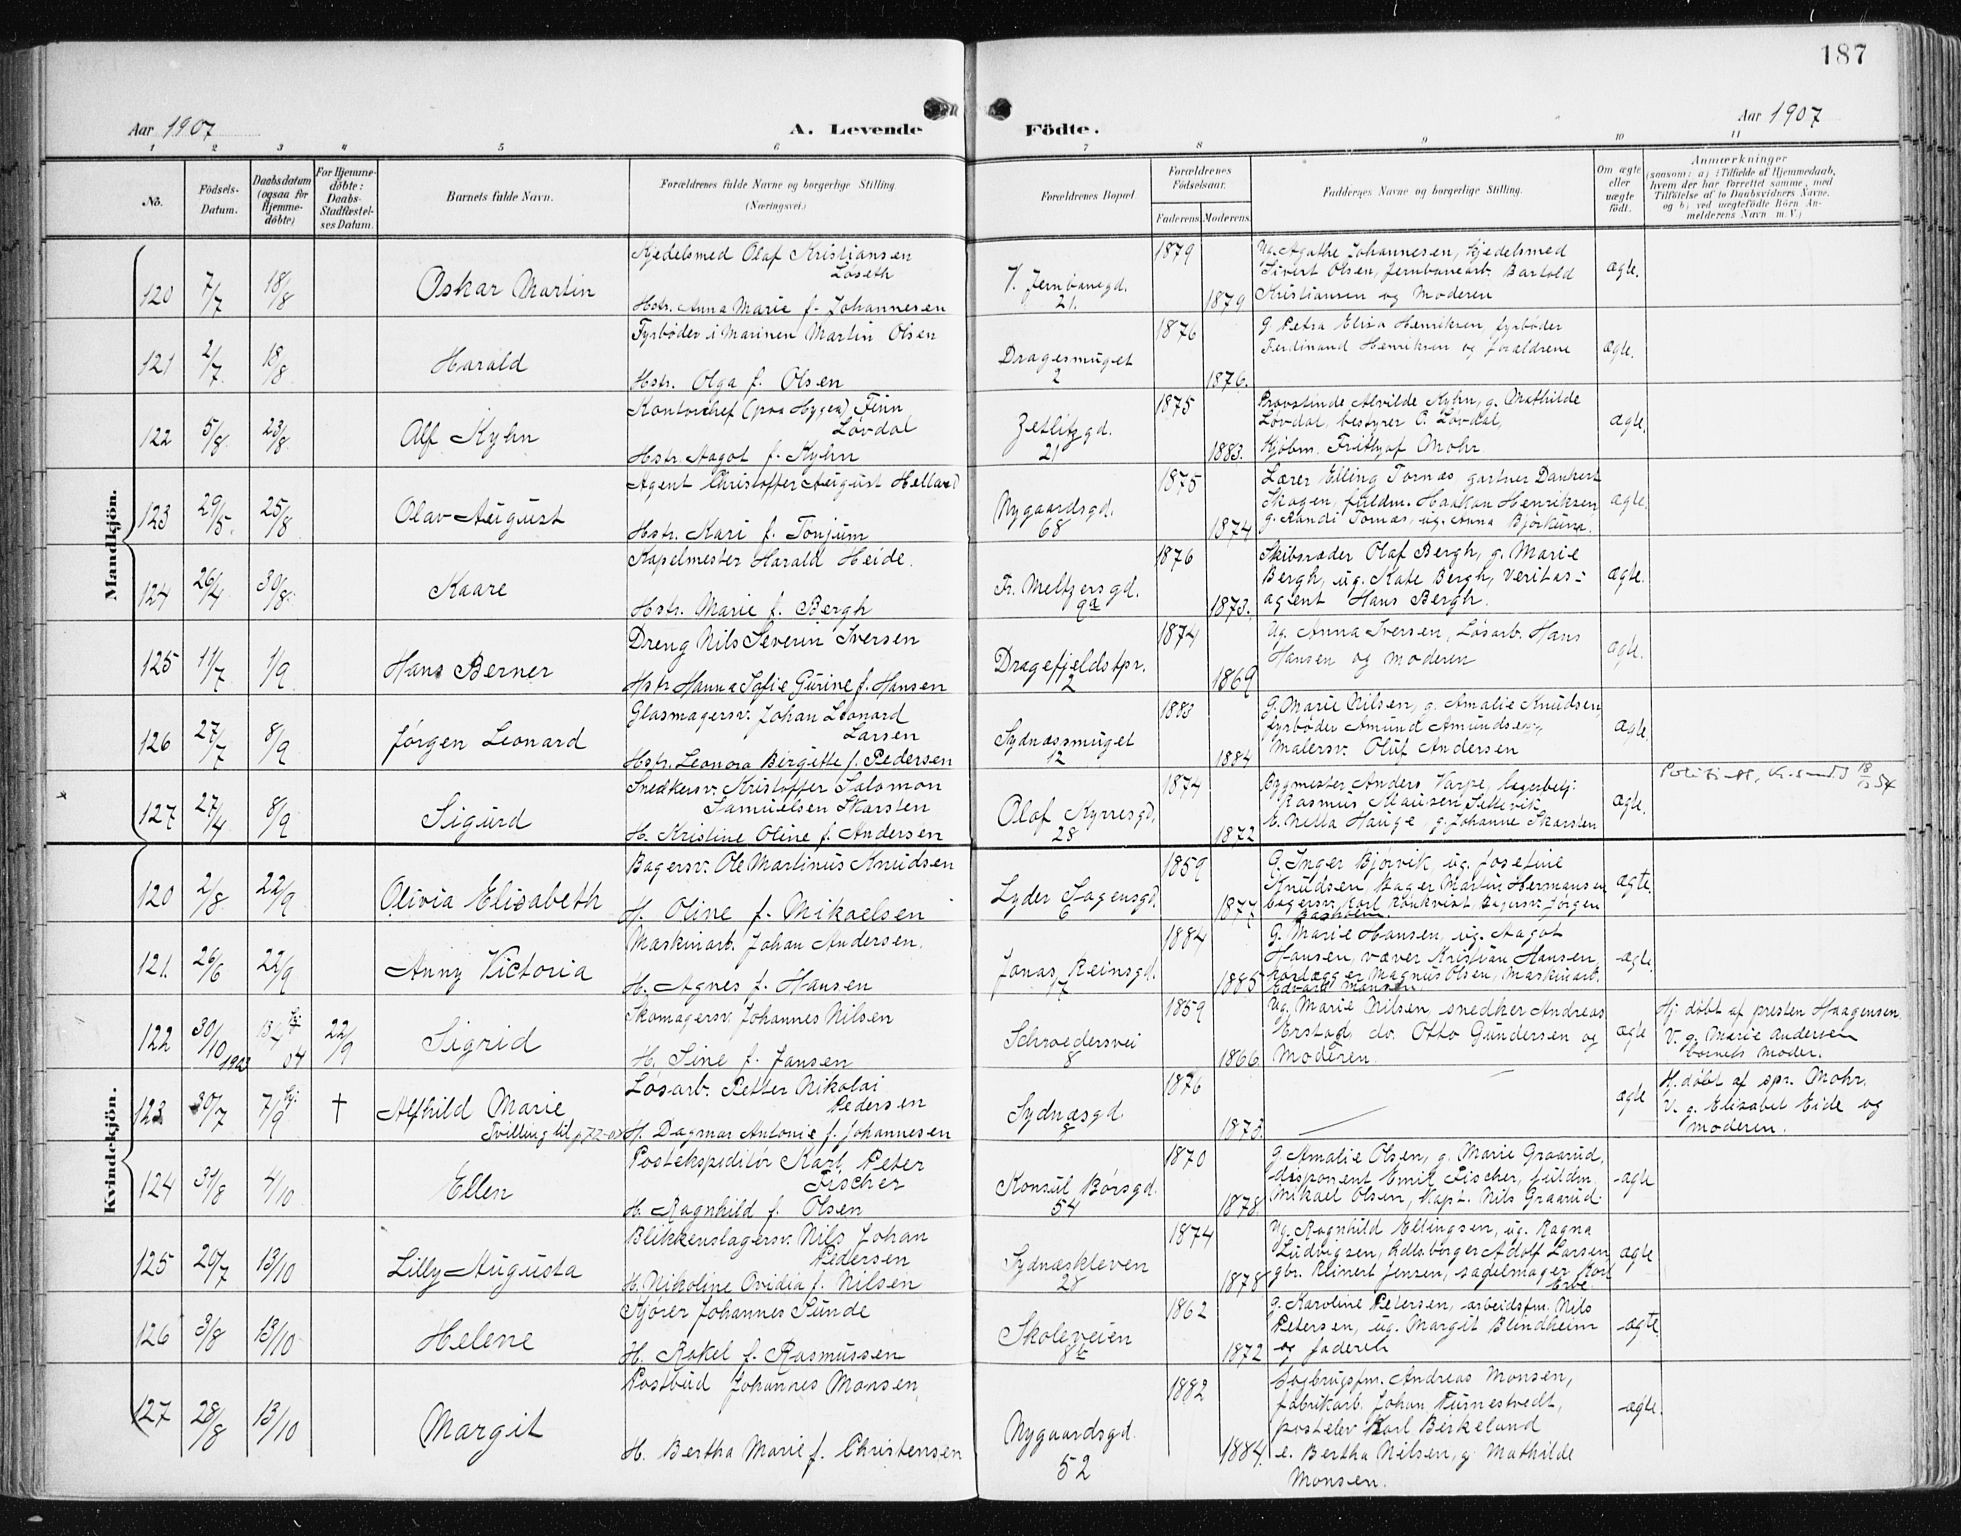 187
Aar 1907
A. Levende
Födte.
Aar 1907
1 2 3 4 5 6 7 8 9 10 11
No.
Födsels-
Datum.
Daabsdatum
(ogsaa for
Hjemme-
döbte)
For Hjemme-
döbte:
Daabs-
Stadfæstel-
ses Datum.
Barnets fulde Navn.
Forældrenes fulde Navne og borgerlige Stilling.
(Næringsvei.)
Forældrenes Bopæl.
Forældrenes
Födselsaar.
Faderens. Moderens.
Fadderes Navne og borgerlige Stilling.
Om ægte
eller
uægte
födt.
Anmærkninger
(saasom: a) i Tilfælde af Hjemmedaab,
hvem der har forrettet samme, med
Tilföielse af to Daabsvidners Navne.
og b) ved uægtefödte Börn An-
melderens Navn m. V.)
Mandkjön.
120 7/7 18/8 Oskar Martin
Kjedelsmed Olaf Kristiansen
Løseth
Hstr. Anna Marie f. Johannesen
V. Jernbanegd.
21.
1879
1879
Ug. Agathe Johannesen, Kjedelsmed
Sivert Olsen, jernbanearb. Bartold
Kristiansen og Moderen
ægte.
121 2/7 18/8 Harald
Fyrbøder i Marinen Martin Olsen
Hstr. Olga f. Olsen
Dragesmuget
2
1876
1876.
G. Petra Elisa Henriksen, fyrbøder
Ferdinand Henriksen og forældrene
ægte.
122 5/8 23/8 Alf Kyhn
Kontorchef (paa Hygea) Finn
Løvdal
Hstr. Aagot f. Kyhn
Zetlitzgd.
21
1875
1883.
Provstinde Alvilde Kyhn, g. Mathilde
Løvdal, bestyrer C. Løvdal,
Kjøbm. Frithjof Mohr
ægte.
123 29/5. 25/8 Olav August
Agent Christoffer August Helland
Hstr. Kari f. Tonjum
Nygaardsgd.
68
1875
1874
Lærer Elling Tornæs, gartner Dankert
Skagen, fuldm. Haakon Henriksen
g. Randi Tornæs, ug. Anna
ægte.
124 26/4 30/8. Kaare
Kapelmester Harald Heide.
Hstr. Marie f. Bergh
Fr. Meltzersgd.
9a
1876
1873.
Skibsræder Olaf Bergh, g. Marie
Bergh, ug. Kate Bergh, Veritas-
agent Hans Bergh.
ægte.
125 11/7 1/9 Hans Berner
Dreng Nils Severin Iversen
Hstr Hanna Sofie Gurine f. Hansen
Dragefjeldstpr.
2
1874
1869
Ug. Anna Iversen, Løsarb. Hans
Hansen og moderen
ægte.
126 27/7 8/9 Jørgen Leonard
Glasmagersv. Johan Leonard
Larsen
Hstr. Leonora Birgitte f. Pedersen
Sydnæssmuget
12
1883
1884
G. Marie Nilsen, g. Amalie Knudsen,
fyrbøder Amund Amundsen,
Malersv. Oluf Andersen
ægte.
127 27/4 8/9 Sigurd
Snedkersv. Kristoffer Salomon
Samuelsen Skarsten
H. Kristine Oline f. Andersen
Olaf Kyrresgd.
28
1874
1872
Bygmester Anders Varpe, lagerbetj.
Rasmus Klausen
e. Nilla Hauge, g. Johanne Skarsten
ægte.
Kvindekjön.
120 2/8 22/9 Olivia Elisabeth
Bagersv. Ole Martinus Knudsen
H. Oline f. Mikaelsen
Lyder Sagensgd.
6
1859
1877
G. Inger Bjørvik, ug. Josefine
Knudsen, Bager Martin Hermansen
bagersv. Karl Rønkvist, Bagersv. Jørgen
ægte.
121. 26/6 22/9 Anny Victoria
Maskinarb. Johan Andersen.
H. Agnes f. Hansen
Jonas Reinsgd.
17
1884
1885
G. Marie Hansen, ug. Aagot
Hansen, væver Kristian Hansen,
Magnus Olsen, Maskinarb.
Edvard
ægte.
122 30/10 1903 13/4 04 22/9 Sigrid
Skomagersv. Johannes Nilsen
H. Sine f. Jansen
Schroedersvei
8
1859
1866
Ug. Marie Nilsen, snedker Andreas
Erstad, do. Otto Gundersen og
Moderen.
ægte
Hj. døbt af presten Haagensen.
V. g. Marie Andersen
barnets moder.
123 30/7 7/9 † Alfhild Marie
Tvilling til
Løsarb. Petter Nikolai
Pedersen
H. Dagmar Antonie f. Johannesen
Sydnæsgd.
8
1876
1873.
ægte
Hj. døbt af spr. Mohr.
V. g. Elisabet Eide og
moderen.
124 31/8 4/10 Ellen
Postekspeditør Karl Peter
Fischer
H. Ragnhild f. Olsen
Konsul Børsgd.
54
1870
1878.
G. Amalie Olsen, g. Marie Graarud,
disponent Emil Fischer, fuldm.
Mikael Olsen, Kapt. Nils Graarud.
ægte
125 20/7 13/10 Lilly Augusta
Blikkenslagersv. Nils Johan
Pedersen
H. Nikoline Ovidia f. Nilsen
Sydnæskleven
28
1874
1878
Ug. Ragnhild Ellingsen, ug. Ragna
Ludvigsen, Adolf Larsen
gbr. Klinert Jensen, sagelmager Karl
ægte
126 3/8 13/10 Helene
Kjører Johannes Sunde
H. Rakel f. Rasmussen
Skoleveien
8b
1862
1872
G. Karoline Petersen, arbeidsfm. Nils
Petersen, ug. Margit Blindheim
og faderen
ægte
127 28/8 13/10 Margit
Postbud Johannes Monsen,
H. Bertha Marie f. Christensen
Nygaardsgd.
52
1882
1884.
Andreas Monsen,
fabrikarb. Johan
postelev Karl Birkeland
e. Bertha Nilsen, g. Mathilde
Monsen.
ægte.